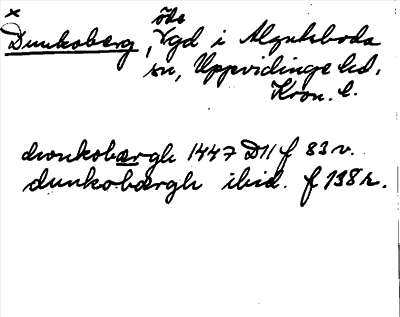 x
Dunkoberg, öde Vgd i Algutsboda
sn, Uppvidinge hd.
Kron. l.
dwnkobærgh 1447 D11 f 83 v.
dunkobærgh ibid. f 138 r.